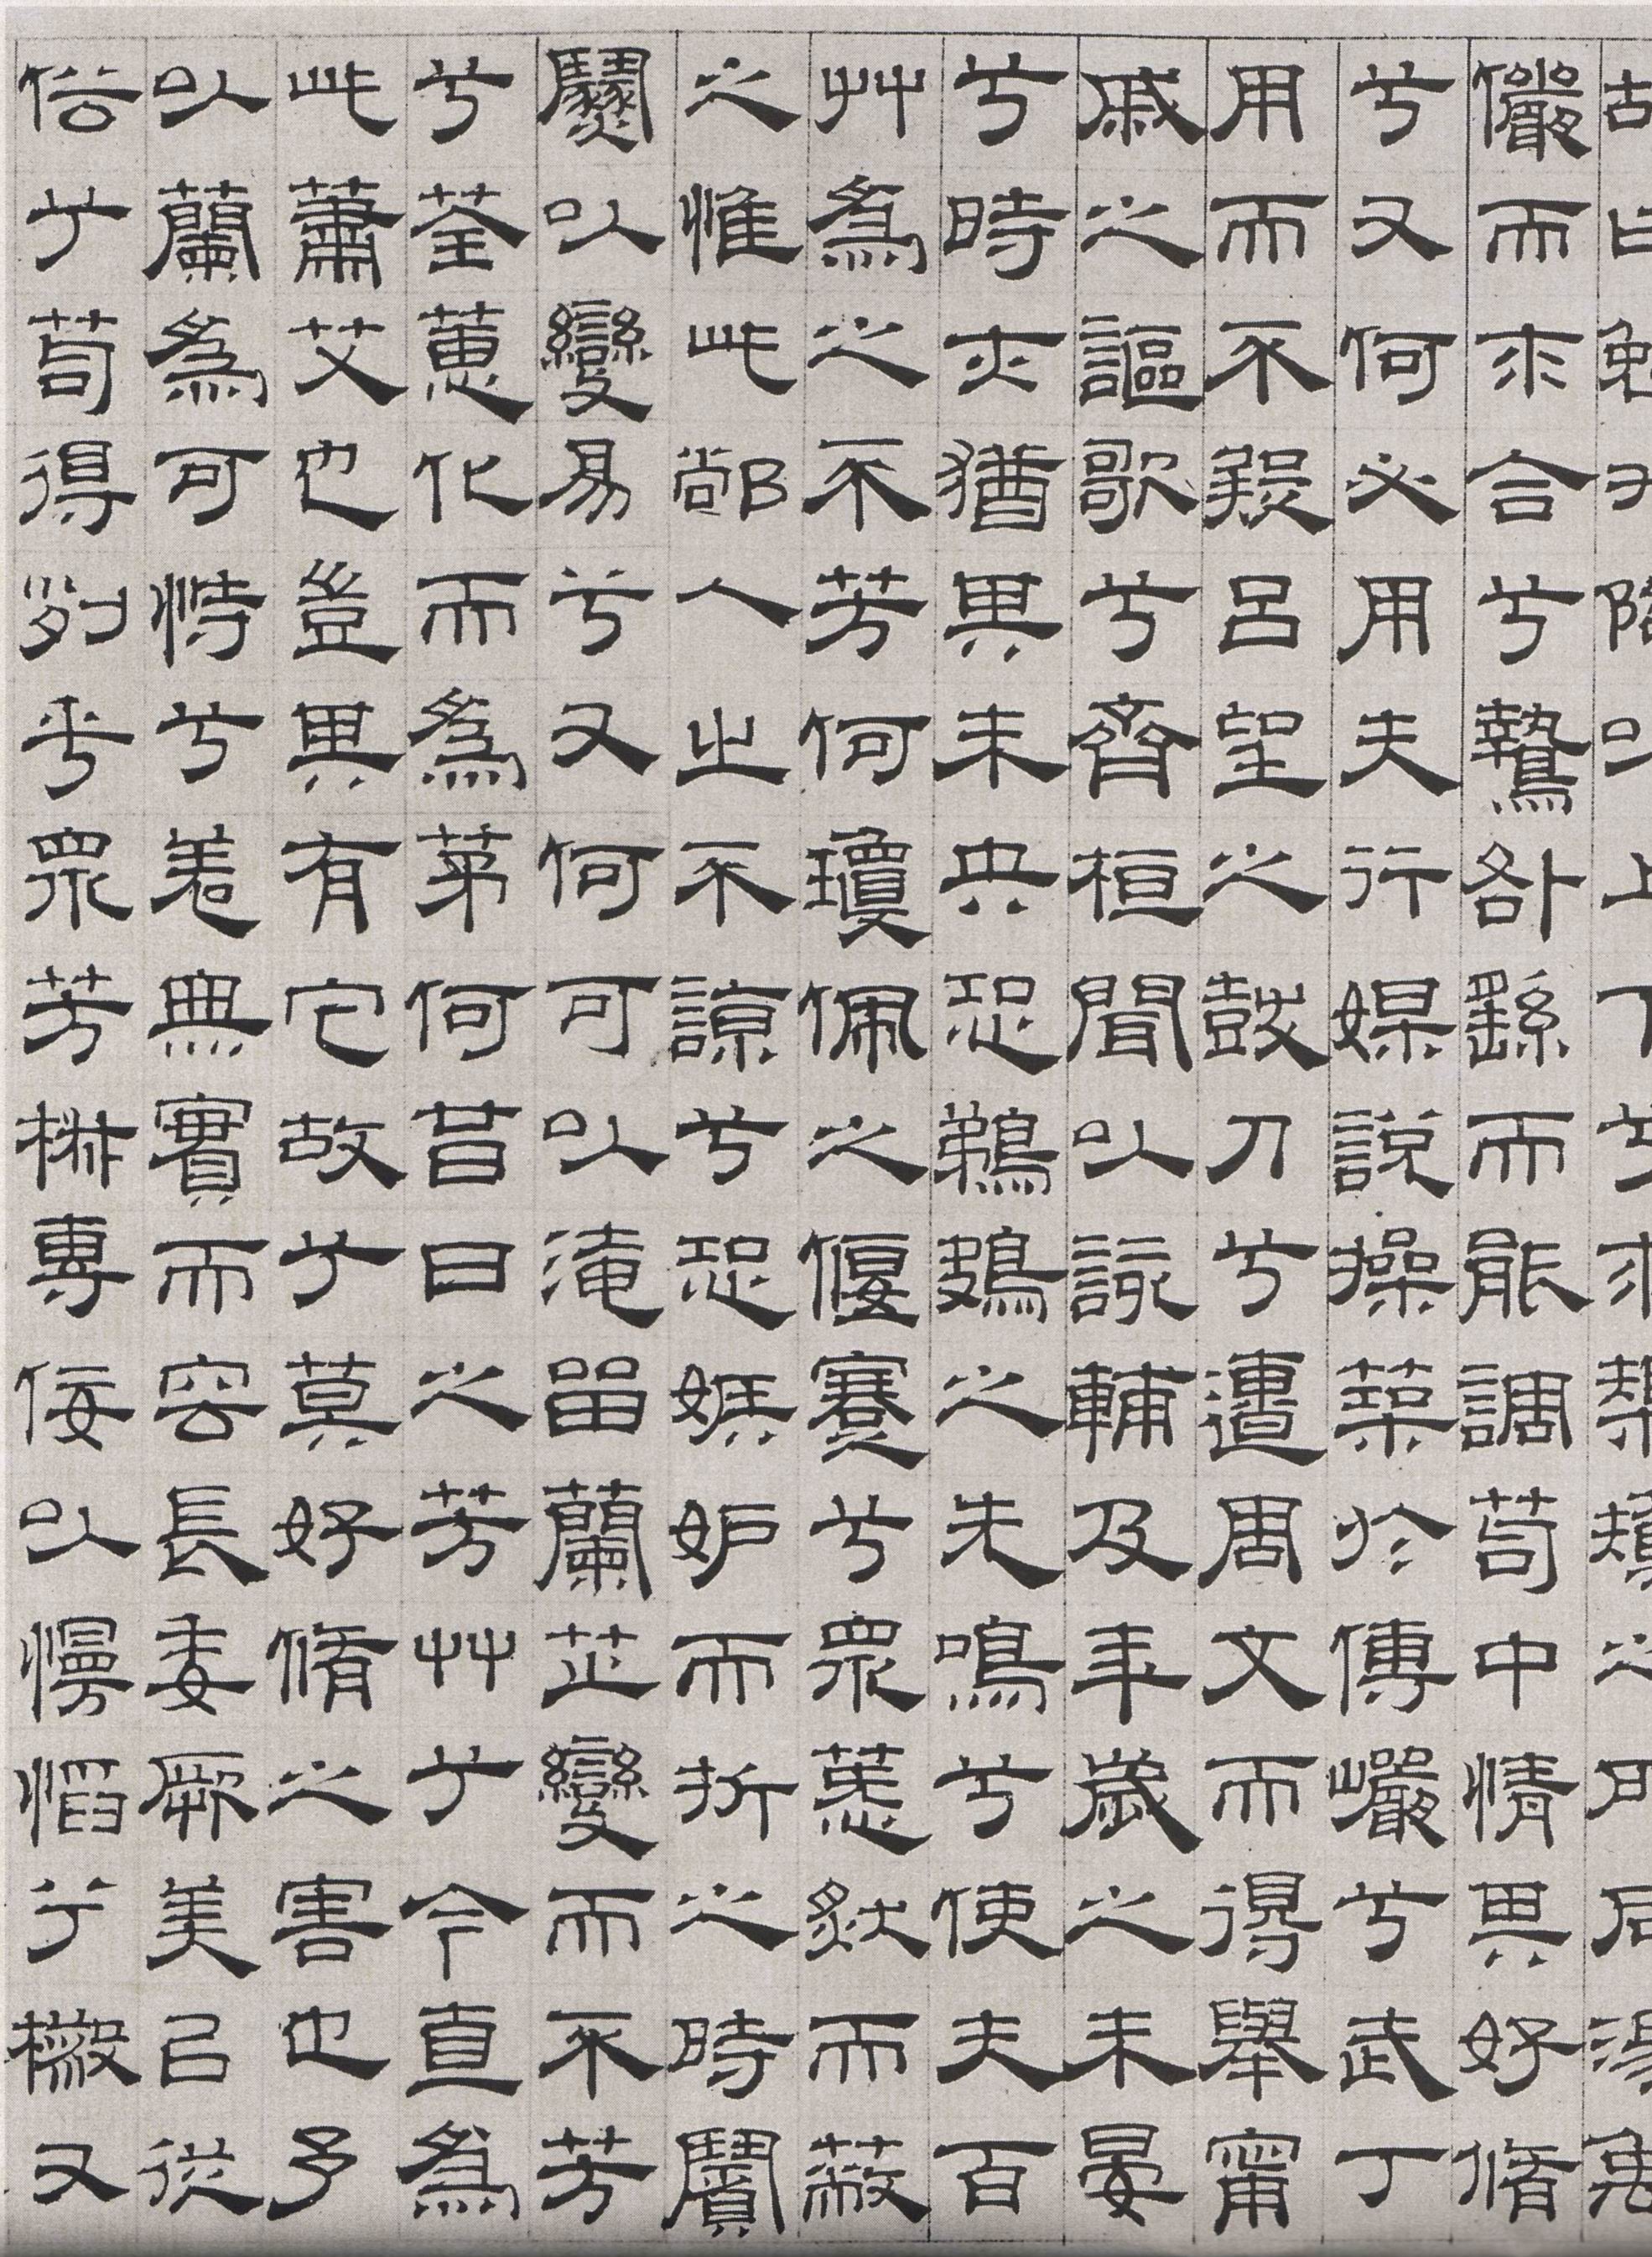 故曰勉升降以上下兮求榘矱之同湯禹
儼而求合兮摯咎繇而能調苟中情其好脩
兮又何必用夫行媒說操築於傅巖兮武丁
用而不疑呂望之鼓刀兮遭周文而得舉甯
戚之謳歌兮齊桓聞以該輔及年歲之未晏
兮時亦猶其未央恐鵜鴂之先鳴兮使夫百
艸爲之不芳何瓊佩之偃蹇兮眾薆然而蔽
之惟此䣊人之不諒兮恐嫉妒而折之時繽
紛以變易兮又何可以淹留蘭芷變而不芳
兮荃蕙化而爲茅何昔日之芳艸兮今直爲
此蕭艾也豈其有它故兮莫好脩之害也予
以蘭爲可恃兮羌無實而容長委厥美以從
俗兮苟得列乎眾芳椒專佞以慢慆兮樧又